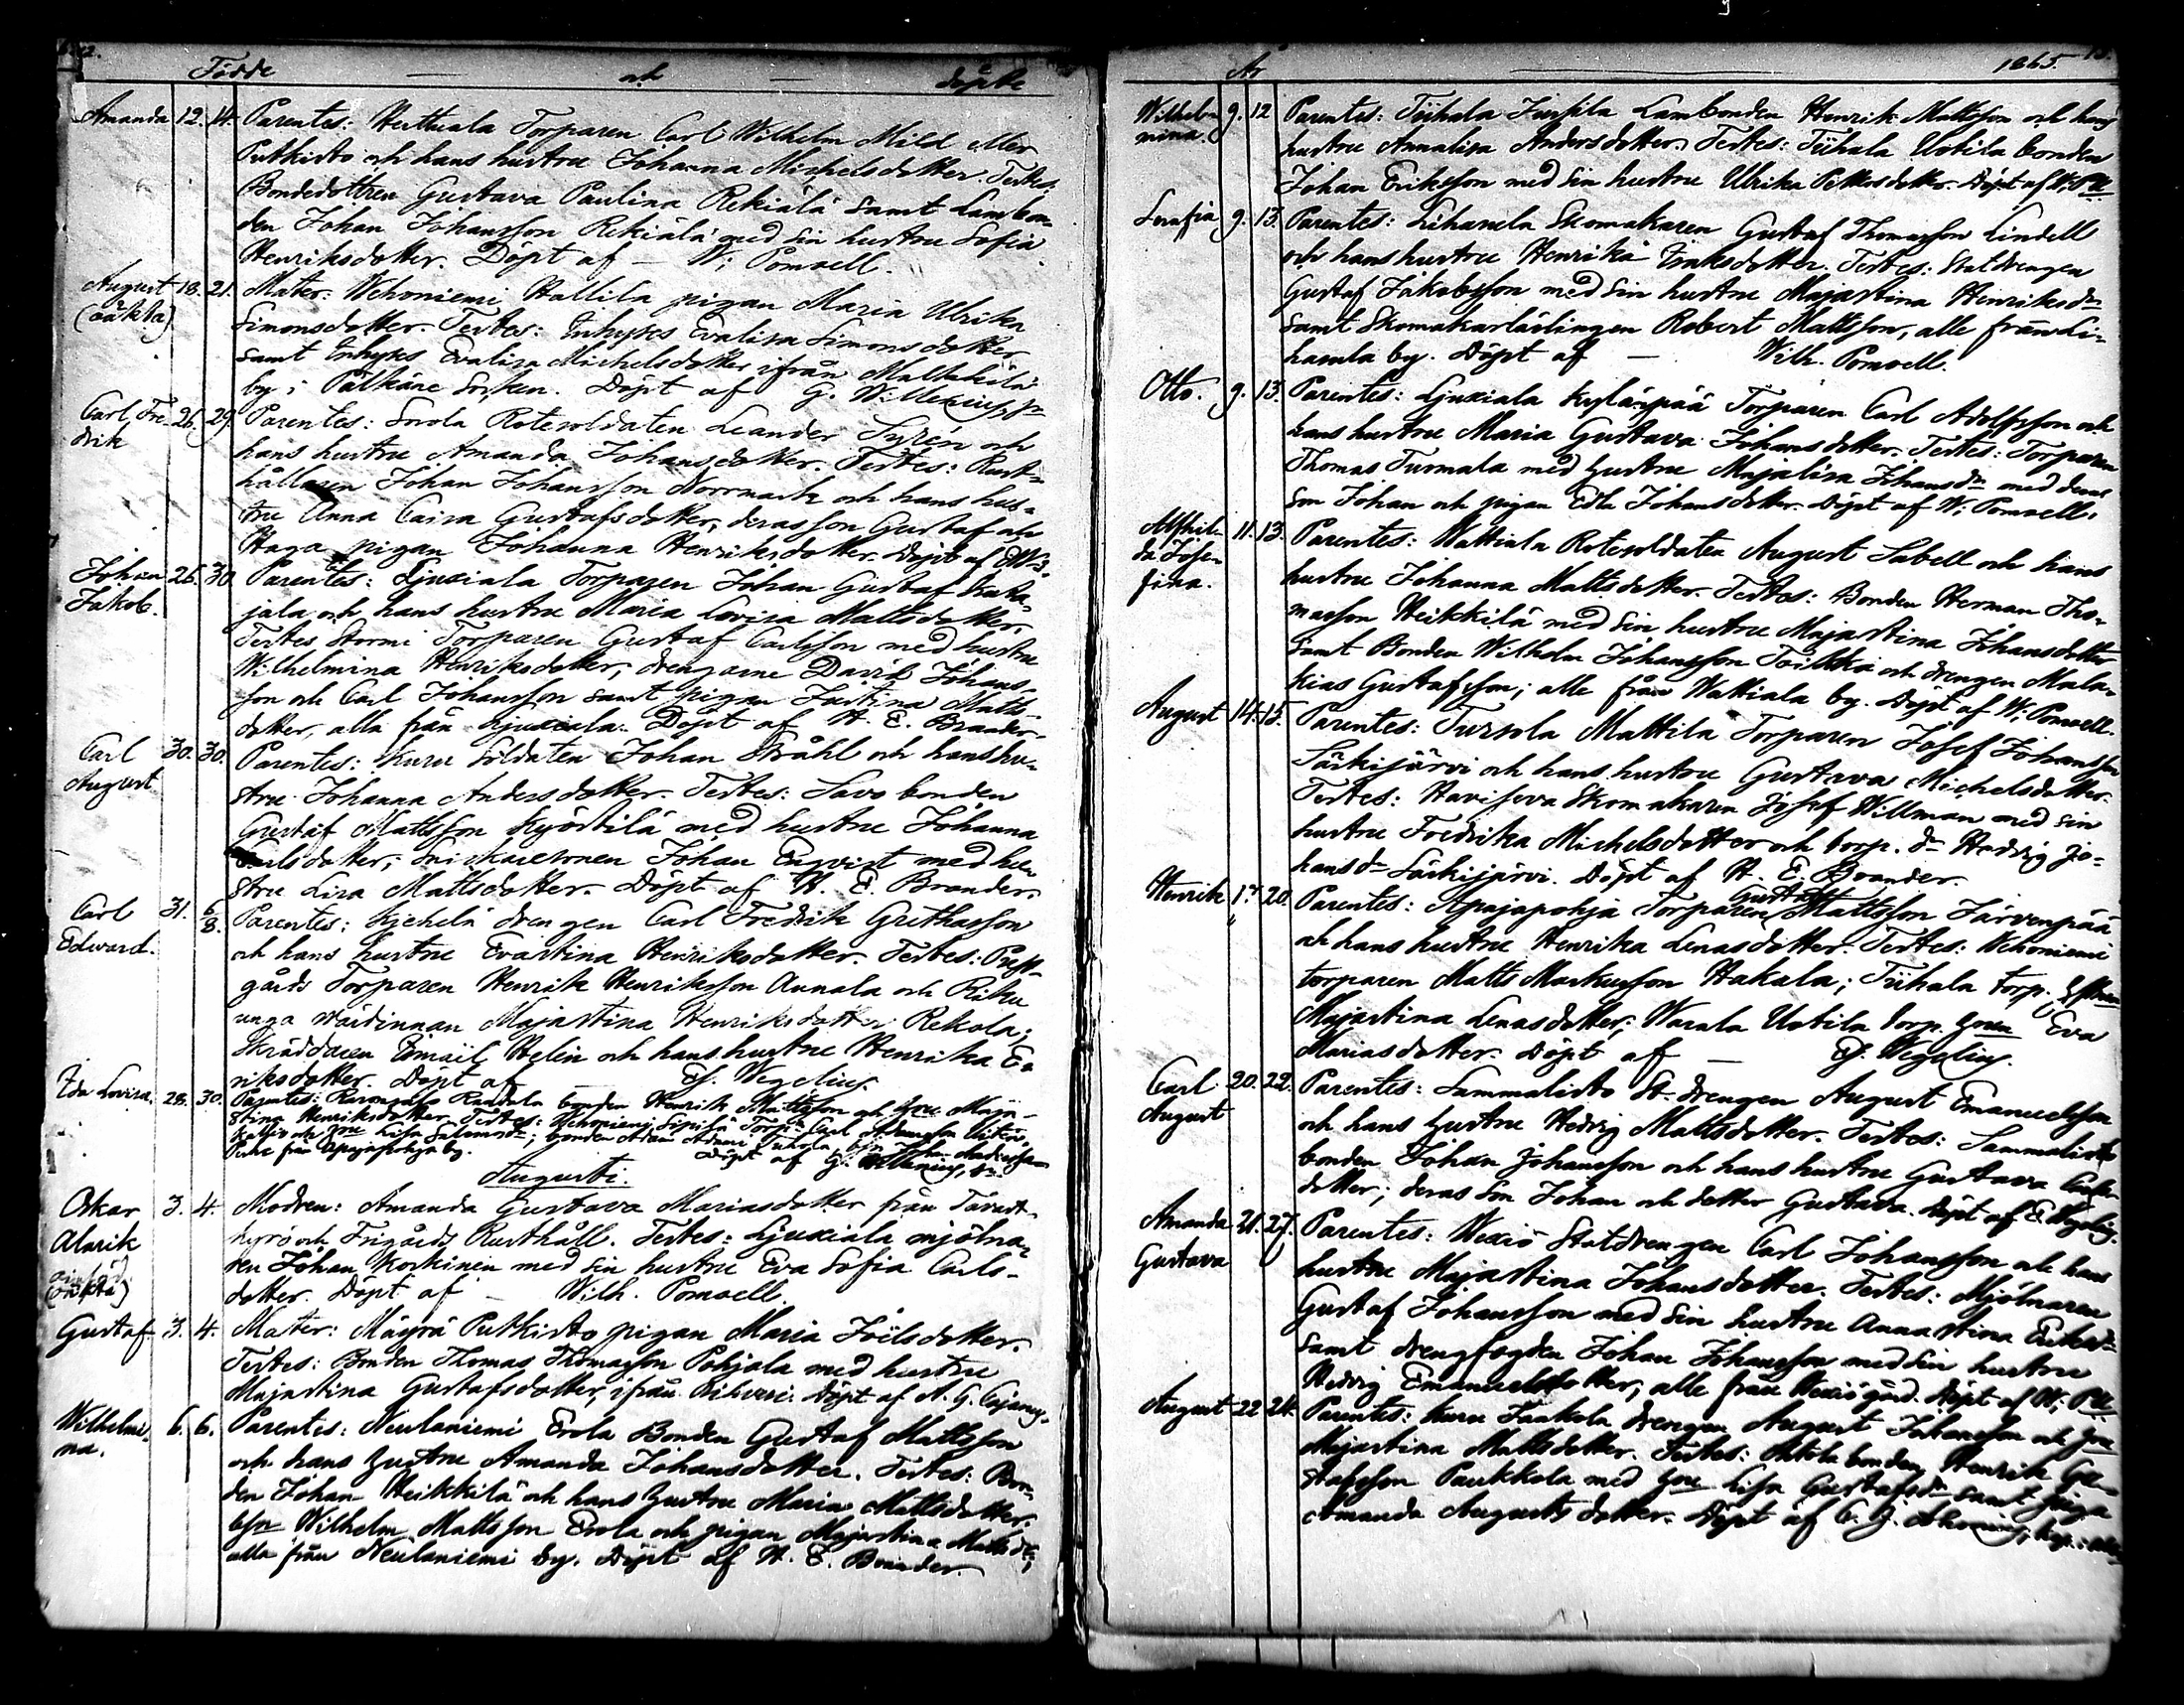 Födde och döpte
Amanda 12. 14. Parentes: Herttuala Torparen Carl Wilhelm Mild eller
Putkisto och hans hustru Johanna Michelsdotter. Testes:
Bondedottren Gustava Paulina Rekiälä samt Lambon-
den Johan Johansson Rekiälä med sin hustru Sofia
Henriksdotter. Döpt af — W: Pomoell.
August 18. 21. Mater: Wehoniemi Hallila pigan Maria Ulrika
(oäkta) Simonsdotter. Testes: Inhyses Evalisa Simonsdotter
samt Inhyses Evalisa Michelsdotter ifrån
by i Pälkäne Socken. Döpt af G.
Carl Fre- 26. 29. Parentes: Sorola Rotesoldaten Leander Syrén och
drik hans hustru Amanda Johansdotter. Testes: Rust-
hållaren Johan Johansson Norrmark och hans hus-
tru Anna Caisa Gustafsdotter, deras son Gustaf och
Haga pigan Johanna Henriksdotter. Döpt af
Johan 26. 30. Parentes: Ljuxiala Torparen Johan Gustaf
Jakob. jala och hans hustru Maria Lovisa Mattsdotter.
Testes Stormi Torparen Gustaf Carlsson med hustru
Wilhelmina Henriksdotter, drengarne David Johans-
son och Carl Johansson samt pigan Justina Matts-
dotter, alla från Ljuxiala. Döpt af H. E. Brander.
Carl 30. 30. Parentes: Kuru Soldaten Johan Stråhl och hans hu-
August stru Johanna Andersdotter. Testes: Savo bonden
Gustaf Mattsson Kyöstilä med hustru Johanna
Carlsdotter; Snickaresonen Johan Enqvist med hu-
stru Lisa Mattsdotter. Döpt af H. E. Brander.
Carl 31. 6/8. Parentes: Kjehelä drengen Carl Fredrik Grethasson
Edward. och hans hustru Evastina Henriksdotter. Testes: Prest-
gårds Torparen Henrik Henriksson Annala och Riku
unga värdinnan Majastina Henriksdotter Rekola;
Skräddaren Ismaïl Helin och hans hustru Henrika E-
riksdotter. Döpt af — Ef. Wegelius.
Ida Lovisa. 28. 30. Parentes: bonden Henrik Mattsson och hru Maja-
stina Henriksdotter. Testes: Wehoniemi
från Apajapohja by. Döpt af G.
Augusti.
Oskar 3. 4. Modren: Amanda Gustava Mariasdotter från Tavast-
Alarik kyrö och Frigårds Rusthåll. Testes: Ljuxiala mjölna-
(oäkta) ren Johan Korkinen med sin hustru Eva Sofia Carls-
dotter. Döpt af — Wilh. Pomoell.
Gustaf 3. 4. Mater: Mäyrä Putkisto pigan Maria Joëlsdotter.
Testes: Bonden Thomas Thomasson Pohjala med hustru
Majastina Gustafsdotter, ifrån Döpt af A. G. Cajanus.
Wilhelmi- 6. 6. Parentes: Neulaniemi Erola Bonden Gustaf Mattsson
na. och hans hustru Amanda Johansdotter. Testes: Bon-
den Johan Heikkilä och hans hustru Maria Mattsdotter.
Wilhelm Mattsson Erola och pigan Majastina Mattsdr,
alla från Neulaniemi by. Döpt af H. E. Brander.
År 1865. 13.
Wilhel- 9. 12 Parentes: Tiihala Jussila Lambonden Henrik Mattsson och hans
mina. hustru Annalisa Andersdotter. Testes: Tiihala Uotila bonden
Johan Eriksson med sin hustru Ulrika Pettersdotter. Döpt af W. Pll
Serafia 9. 13. Parentes: Lihasula Skomakaren Gustaf Thomasson Lindell
och hans hustru Henrika Isaksdotter. Testes: Statdrengen
Gustaf Jakobsson med sin hustru Majastina Henriksdr
samt Skomakarlärlingen Robert Mattsson, alle från Li-
hasula by. Döpt af — Wilh. Pomoell.
Otto. 9. 13. Parentes: Ljuxiala Kylänpää Torparen Carl Adolfsson och
hans hustru Maria Gustava Johansdotter. Testes: Torparen
Thomas Turmala med hustru Majalisa Johansdr med deras
son Johan och pigan Edla Johansdotter. Döpt af W: Pomoell.
Alfhil- 11. 13. Parentes: Wattiala Rotesoldaten August Sabell och hans
da Jose- hustru Johanna Mattsdotter. Testes: Bonden Herman Tho-
fina. masson Heikkilä med sin hustru Majastina Johansdotter
samt Bonden Wilhelm Johansson Toikka och drengen Mala-
kias Gustafsson; alle från Wattiala by. Döpt af W: Pomoell.
August 14. 15. Parentes: Tursola Mattila Torparen Josef Johansson
Särkijärvi och hans hustru Gustava Michelsdotter.
Testes: Havisevа Skomakaren Josef Willman med sin
hustru Fredrika Michelsdotter och torp. dr Hedvig Jo-
hansdr Särkijärvi. Döpt af H. E. Brander.
Henrik 17. 20. Parentes: Apajapohja Torparen Gustaf Mattsson Järvenpää
och hans hustru Henrika Lenasdotter. Testes: Wehoniemi
torparen Matts Markusson Hakala; Tiihala torp.
Majastina Lenasdotter; Warala Uotila torp. hrun Eva
Mariasdotter. Döpt af — Ef. Wegelius.
Carl 20. 22. Parentes: Sammalisto St. drengen August Emanuelsson
August och hans hustru Hedvig Mattsdotter. Testes: Sammalisto
bonden Johan Johansson och hans hustru Gustava Carls-
dotter; deras son Johan och dotter Gustava. Döpt af E. Wegelius.
Amanda 21. 27. Parentes: Wexiö Statdrengen Carl Johansson och hans
Gustava hustru Majastina Johansdotter. Testes: Mjölnaren
Gustaf Johansson med sin hustru Annastina Eriksdr
samt drengfogden Johan Johansson med sin hustru
Hedvig Emanuelsdotter, alle från Wexiö gård. Döpt af W: Pll
August 22 24. Parentes: Kuru Jaakola drengen August Johansson och hru
Majastina Mattsdotter. Testes: bonden Henrik Gu-
stafsson Paukkola med hru Lisa Gustafsdr samt piga
Amanda Augustsdotter. Döpt af C. J.